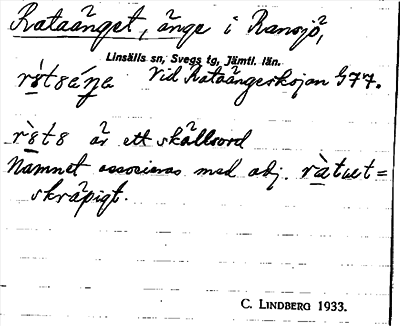 Rataänget, änge i Ransjö,
Linsälls sn, Svegs tg, Jämtl. län.
Vid Rataängeskojan 577.
är ett skällsord
Namnet associeras med adj.
skräpigt.
C. LINDBERG 1933.